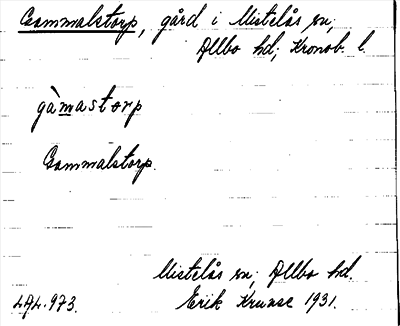 Gammalstorp, gård i Mistelås sn;
Allbo hd; Kronob. l.
gàmastorp
Gammalstorp.
Mistelås sn; Allbo hd.
L.A.L. 973.
Erik Krusse 1931.